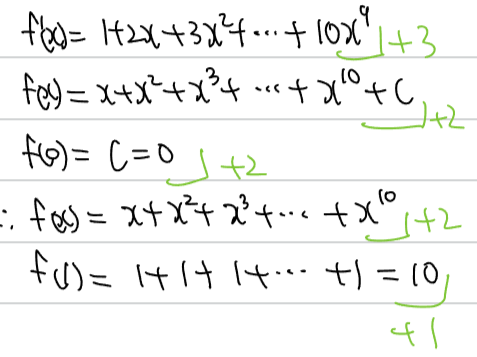 f'(x) = 1+2x+3x²+⋯+10x⁹ +3
f(x) = x+x²+x³+⋯+x¹⁰+C +2
f(0) = C=0 +2
∴ f(x) = x+x²+x³+⋯+x¹⁰ +2
f(1) = 1+1+1+⋯+1 = 10
+1